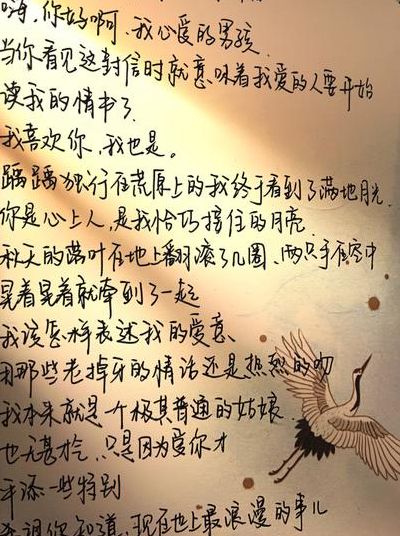 嗨,你好啊、我心爱的男孩.
当你看见这封信时就意味着我爱的人要开始
读我的情书了.
我喜欢你,我也是。
踽踽独行在荒原上的我终于看到了满地月光.
你是心上人,是我恰巧接住的月亮.
秋天的落叶在地上翻滚了几圈、两只手在空中
晃着晃着就牵到了一起
我该怎样表述我的爱意、
用那些老掉牙的情话还是热烈的吻
我本来就是一个极其普通的姑娘.
也无甚才气.只是因为爱你才
平添一些特别
你知道、现在地上最浪漫的事儿